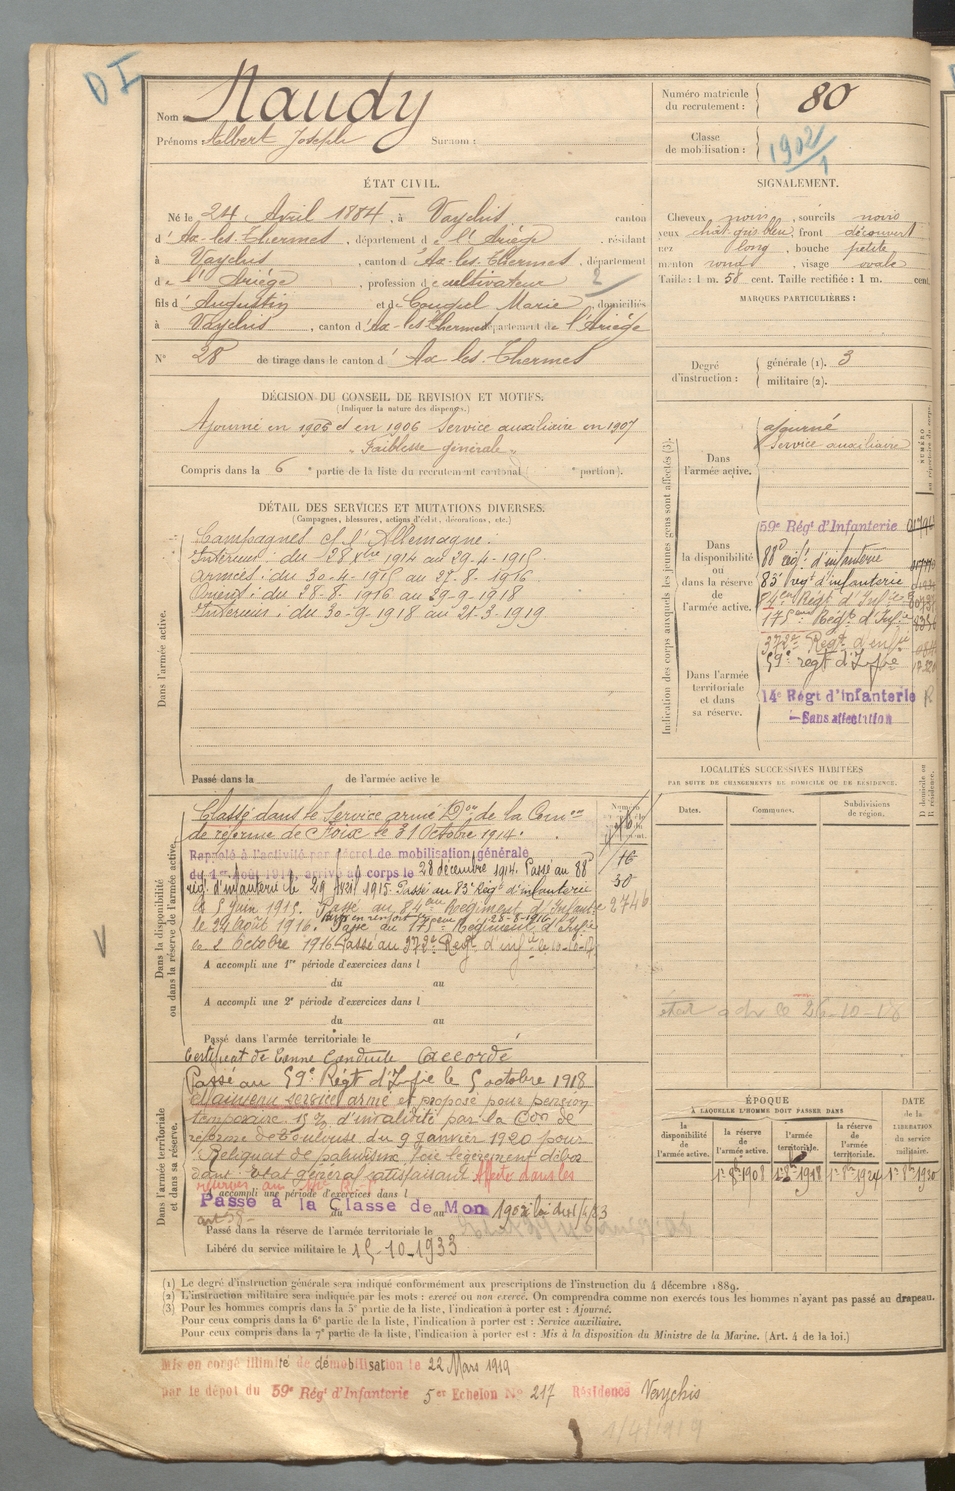 D I
Nom : Naudy
Prénoms : Albert Joseph Surnom :
Numéro matricule du recrutement : 80
Classe de mobilisation : 1902/1
ÉTAT CIVIL.
Né le 24 Avril 1884, à Vaychis canton
d'Ax-les-Thermes, département de l'Ariége, résidant
à Vaychis, canton d'Ax-les-Thermes, département
de l'Ariége, profession de cultivateur 2
fils d'Augustin et de Marie, domiciliés
à Vaychis, canton d'Ax-les-Thermes département de l'Ariége
N° 28 de tirage dans le canton d'Ax-les-Thermes
SIGNALEMENT.
Cheveux noirs, sourcils noirs
yeux chât. gris bleu, front découvert
nez long, bouche petite
menton rond, visage ovale
Taille : 1 m. 58 cent. Taille rectifiée : 1 m. cent.
MARQUES PARTICULIÈRES :
Degré d'instruction : générale (1). 3
militaire (2).
DÉCISION DU CONSEIL DE REVISION ET MOTIFS.
(Indiquer la nature des dispenses.)
Ajourné en 1905 et en 1906 Service auxiliaire en 1907
" Faiblesse générale "
Compris dans la 6e partie de la liste du recrutement cantonal ( e portion).
DÉTAIL DES SERVICES ET MUTATIONS DIVERSES.
(Campagnes, blessures, actions d'éclat, décorations, etc.)
Dans l'armée active.
Campagnes c/ l'Allemagne :
Intérieur : du 28 Xbre 1914 au 29-4-1915
armées : du 30-4-1915 au 27-8-1916
Orient : du 28-8-1916 au 29-9-1918
Intérieur : du 30-9-1918 au 21-3-1919
Passé dans la de l'armée active le
Indication des corps auxquels les jeunes gens sont affectés (3).
Dans l'armée active.
ajourné
Service auxiliaire
Dans la disponibilité ou dans la réserve de l'armée active.
59e Régt d'Infanterie
88e régt d'infanterie
83e regt d'infanterie
84eme Régt d'Infie
175eme Régt d'Infie
372e Regt d'infie
59e regt d'Infie
Dans l'armée territoriale et dans sa réserve.
14e Régt d'infanterie
— Sans affectation
LOCALITÉS SUCCESSIVES HABITÉES
PAR SUITE DE CHANGEMENTS DE DOMICILE OU DE RÉSIDENCE.
Dates. Communes. Subdivisions de région. D domicile ou R résidence.
Dans la disponibilité ou dans la réserve de l'armée active.
Classé dans le Service armé Don de la Comon
de réforme de Foix le 31 Octobre 1914.
Rappelé à l'activité par décret de mobilisation générale
du 1er Août 1914, arrivé au corps le 28 décembre 1914. Passé au 88e
rég. d'infanterie le 29 1915. Passé au 83e Régt d'infanterie
le 5 Juin 1915. Passé au 84eme Régiment d'Infanterie
le 24 Août 1916. Passé au 175eme Régiment d'Infie
le 2 Octobre 1916. Passé au 372e Regt d'infie
16
30
2746
A accompli une 1re période d'exercices dans l
du au
A accompli une 2e période d'exercices dans l
du au
Passé dans l'armée territoriale le
Certificat de Bonne Conduite Accordé
Dans l'armée territoriale et dans sa réserve.
Passé au 59e Régt d'Infie le 5 octobre 1918
Maintenu service armé et proposé pour pension
temporaire 15 % d'invalidité par la Con de
réforme de Toulouse du 9 Janvier 1920 pour
"Reliquat de paludisme foie légèrement débor
dant état général satisfaisant Affecté dans les
réserves au
A accompli une période d'exercices dans l
Passé à la Classe de Mon 1902 loi du
art 58
du au
Passé dans la réserve de l'armée territoriale le
Libéré du service militaire le 15-10-1933
26-10-18
ÉPOQUE
À LAQUELLE L'HOMME DOIT PASSER DANS
la disponibilité de l'armée active. la réserve de l'armée active. l'armée territoriale. la réserve de l'armée territoriale.
DATE de la LIBÉRATION du service militaire.
1er 8bre 1908 1er 8bre 1918 1er 8bre 1924 1er 8bre 1930
(1) Le degré d'instruction générale sera indiqué conformément aux prescriptions de l'instruction du 4 décembre 1889.
(2) L'instruction militaire sera indiquée par les mots : exercé ou non exercé. On comprendra comme non exercés tous les hommes n'ayant pas passé au drapeau.
(3) Pour les hommes compris dans la 5e partie de la liste, l'indication à porter est : Ajourné.
Pour ceux compris dans la 6e partie de la liste, l'indication à porter est : Service auxiliaire.
Pour ceux compris dans la 7e partie de la liste, l'indication à porter est : Mis à la disposition du Ministre de la Marine. (Art. 4 de la loi.)
Mis en congé illimité de démobilisation le 22 Mars 1919
par le dépôt du 59e Régt d'Infanterie 5er Echelon N° 217 Résidence Vaychis
1/4/1919